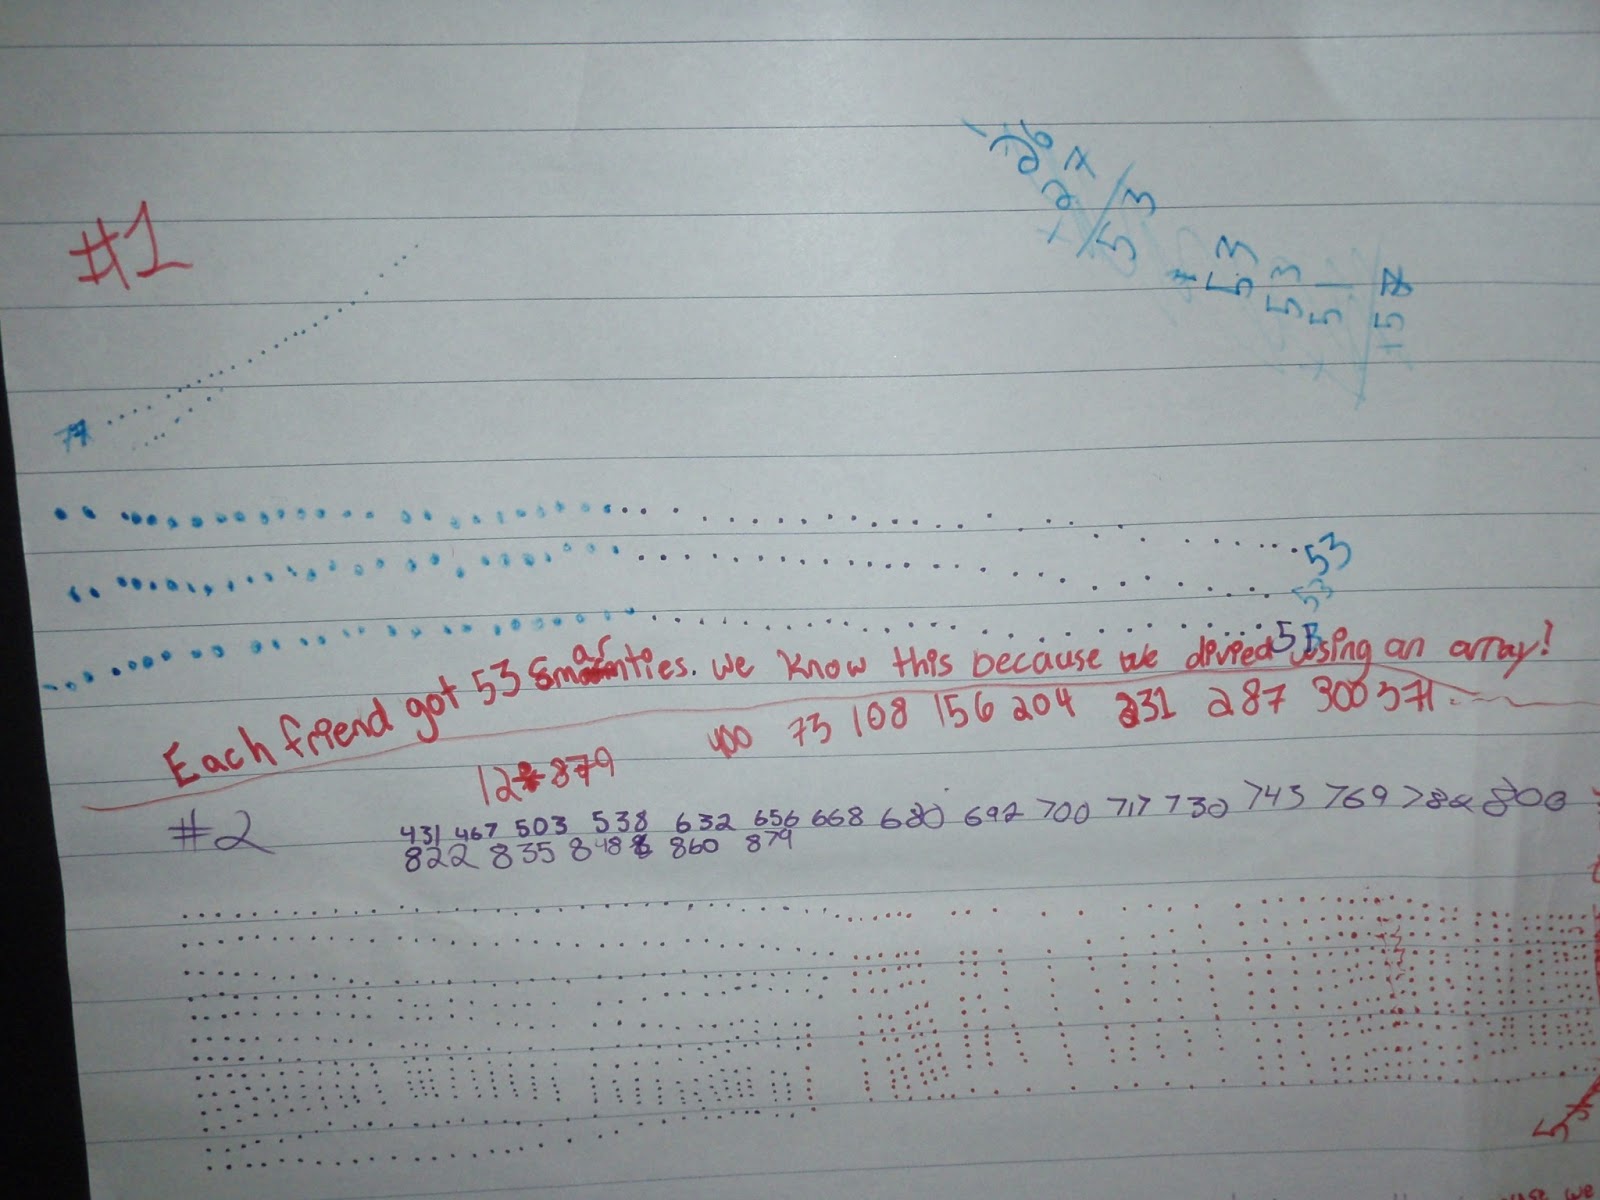 #1
26
27
53
+
53
53
51
53
53
53
Each friend got 53 smarties. we know this because we divied using an array!
400 73 108 156 204 231 287 300 371
12 879
#2
431 467 503 538 632 656 668 680 692 700 717 730 743 769 782 808
822 835 848 860 879